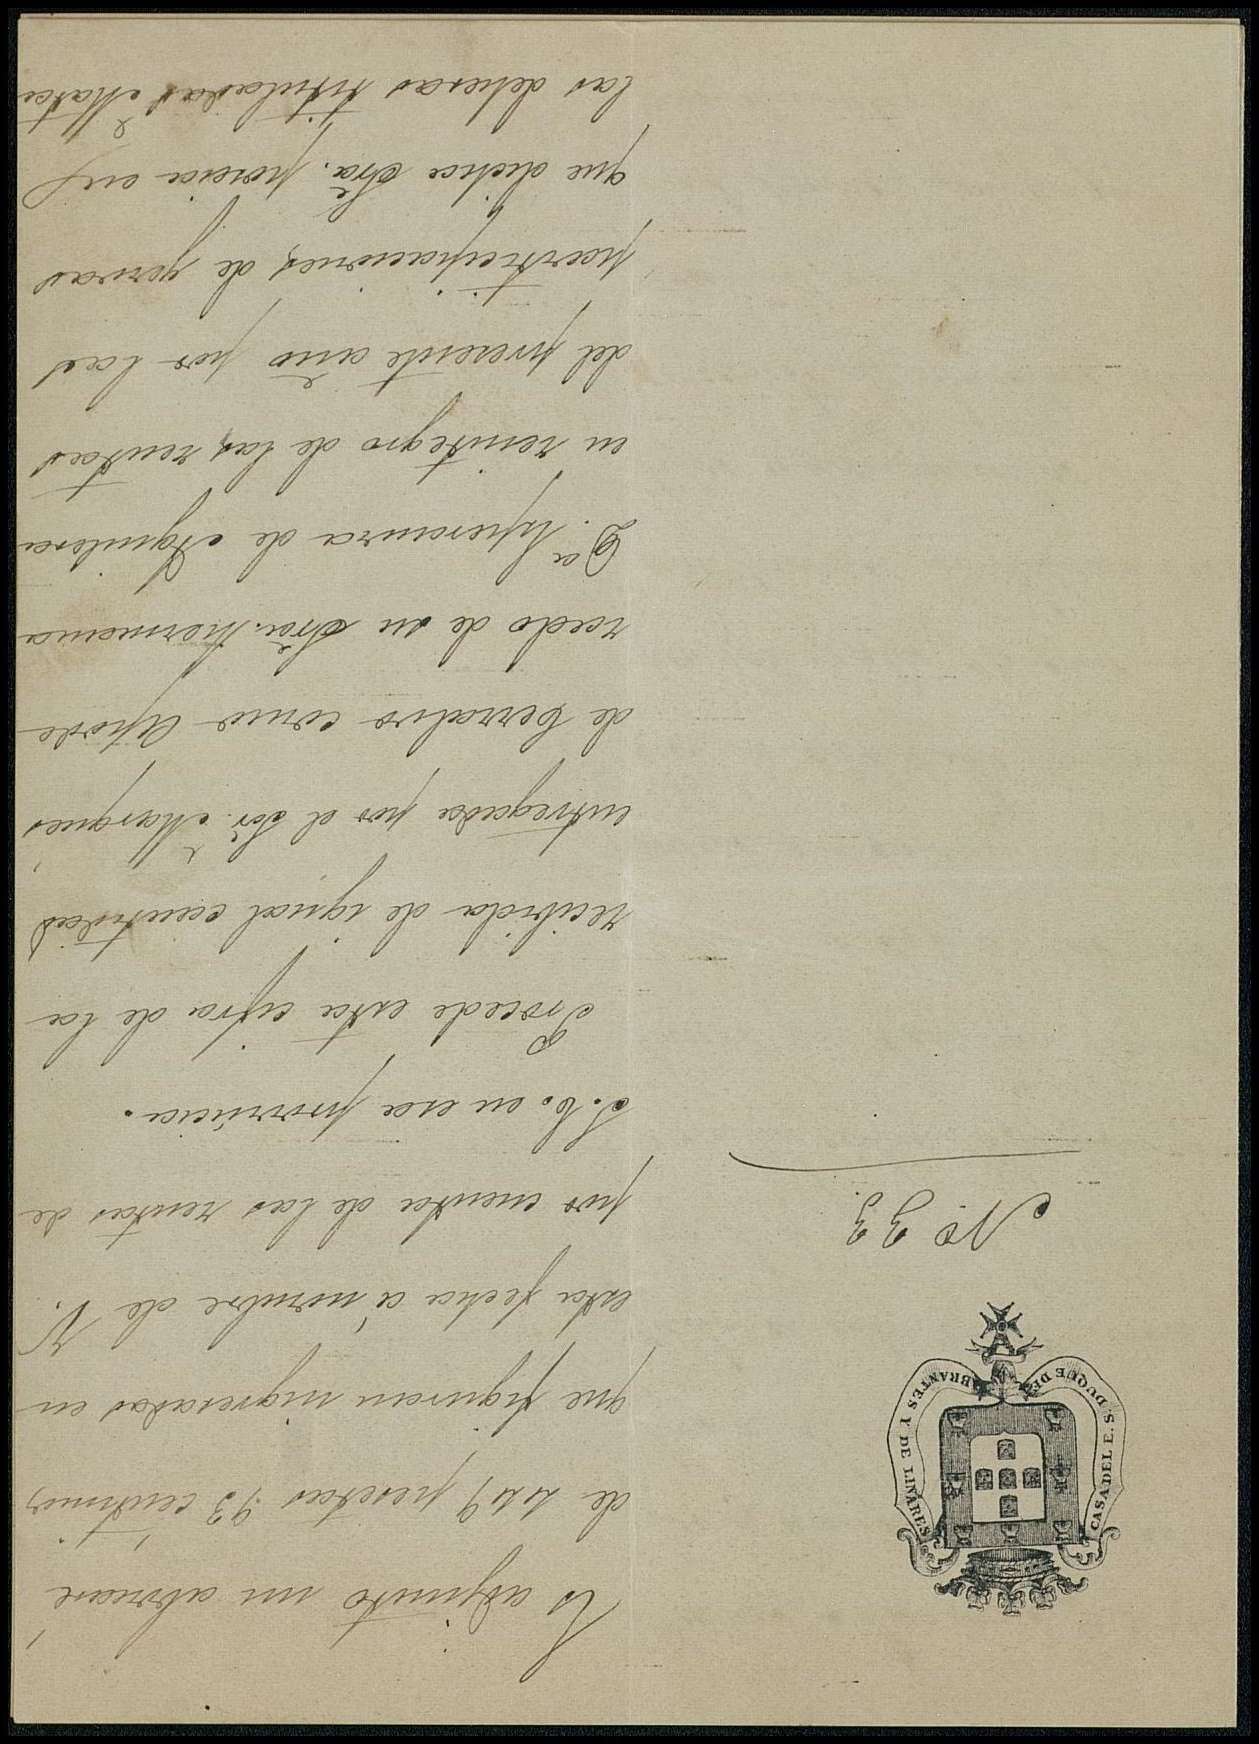 CASA DEL E. S. DUQUE DE ABRANTES Y DE LINARES
Nº 33.
Es adjunto un abonaré
de 449 pesetas 93 centimos
que figuran ingresadas en
esta fecha á nombre de V.
por cuenta de las rentas de
S. E. en esa provincia.
Procede esta cifra de la
recibida de igual cantidad
entregada por el Sõr. Marqués
de Cerralvo como Apode
rado de su Srã. hermana
Dª. Esperanza de Aguilera
en reintegro de las rentas
del presente año por las
participaciones de yervas
que dicha Srã. poseia en
las dehesas tituladas